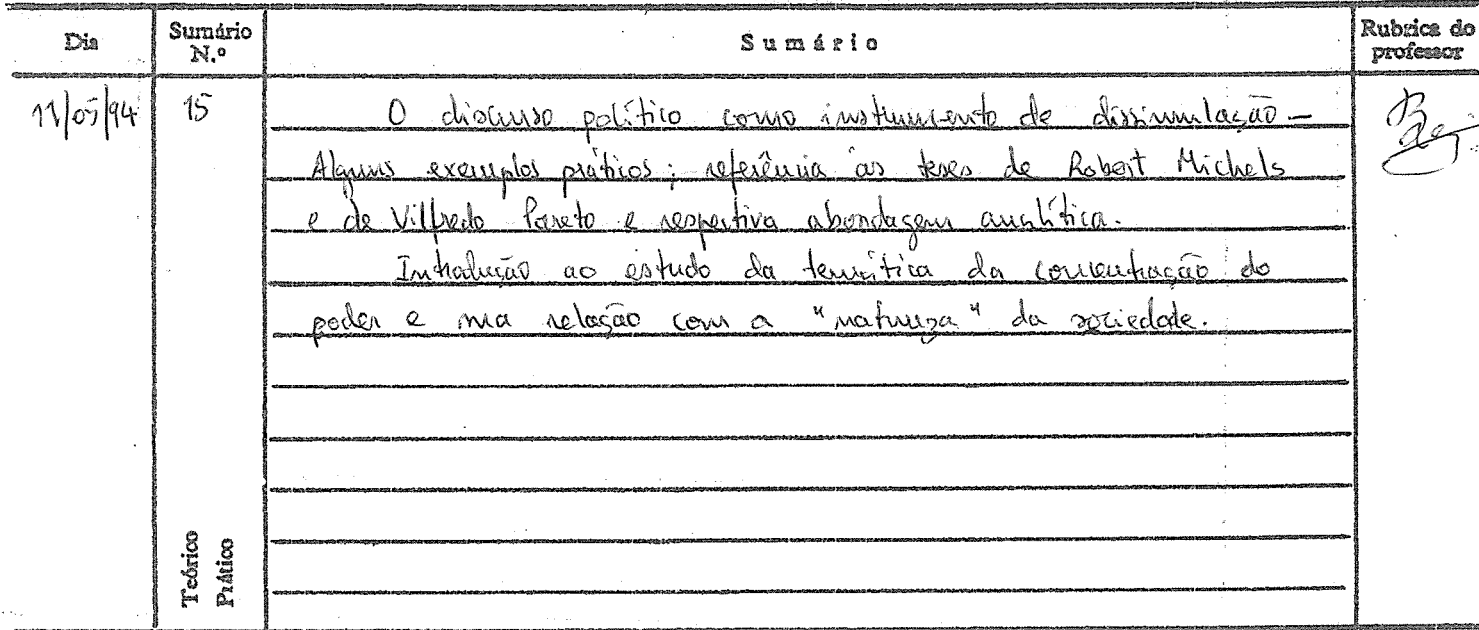 Dia Sumário N.º Sumário Rubrica do professor
11/05/94 15 O discurso político como instrumento de dissimulação –
Alguns exemplos práticos; referência às teses de Robert Michels
e de Vilfredo Pareto e respectiva abordagem analítica.
Introdução ao estudo da temática da concentração do
poder e sua relação com a "natureza" da sociedade.
Teórico
Prático